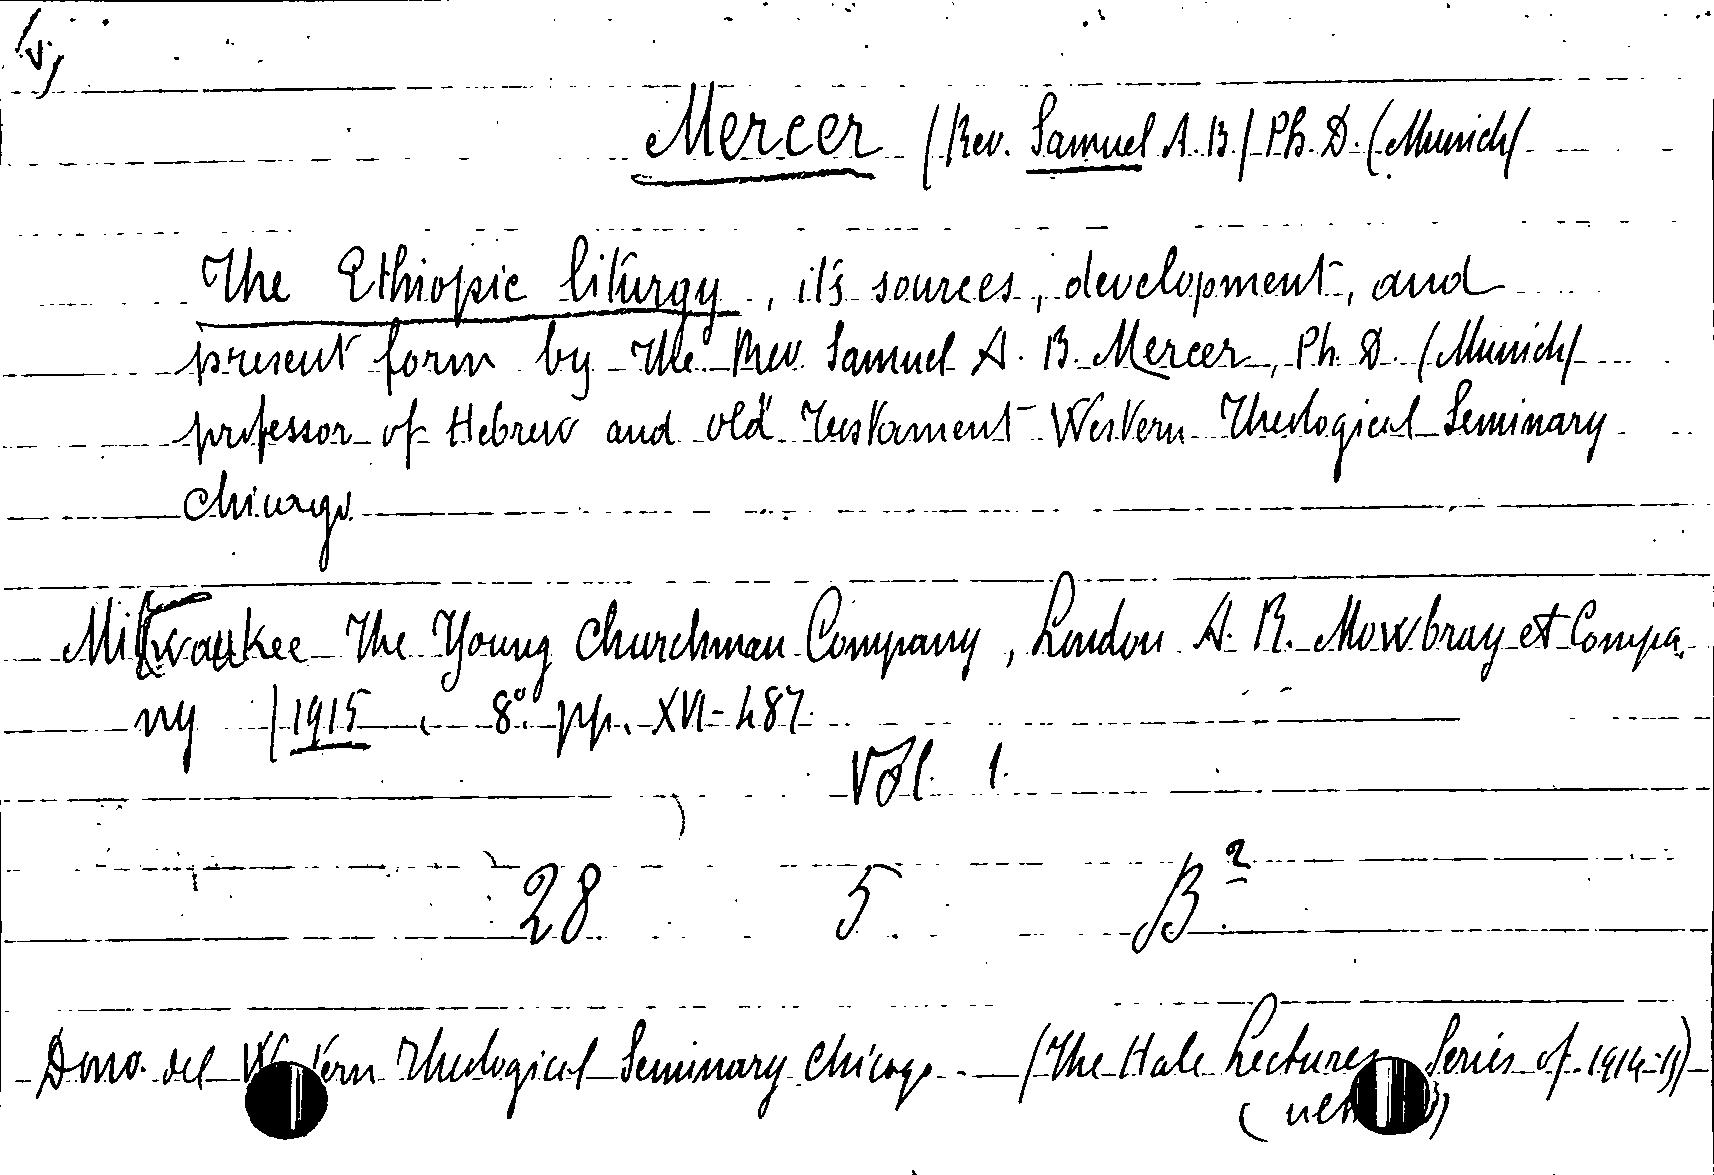 (v.)
Mercer (Rev. Samuel A. B.) Ph. D. (Munich)
The Ethiopic liturgy, its sources, development, and
present form by the Rev. Samuel A. B. Mercer, Ph. D. (Munich)
professor of Hebrew and old Testament Western Theological Seminary
Chicago.
Milwaukee The Young Churchman Company, London A. R. Mowbray et Compa.
ny (1915. 8° pp. XVI-487.
Vol. 1.
28 5 B²
Dono. del Western Theological Seminary Chicago. - (The Hale Lectures Series of. 1914-15)